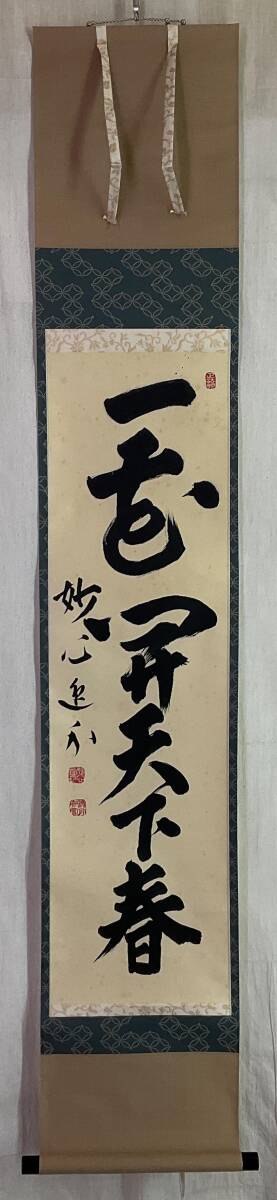 一花開天下春
妙心